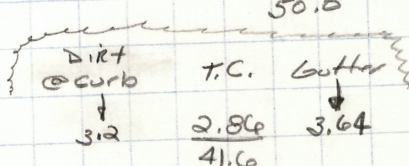 50.0
Dirt
@ curb T.C. Gutter
3.2 2.86 3.64
41.6